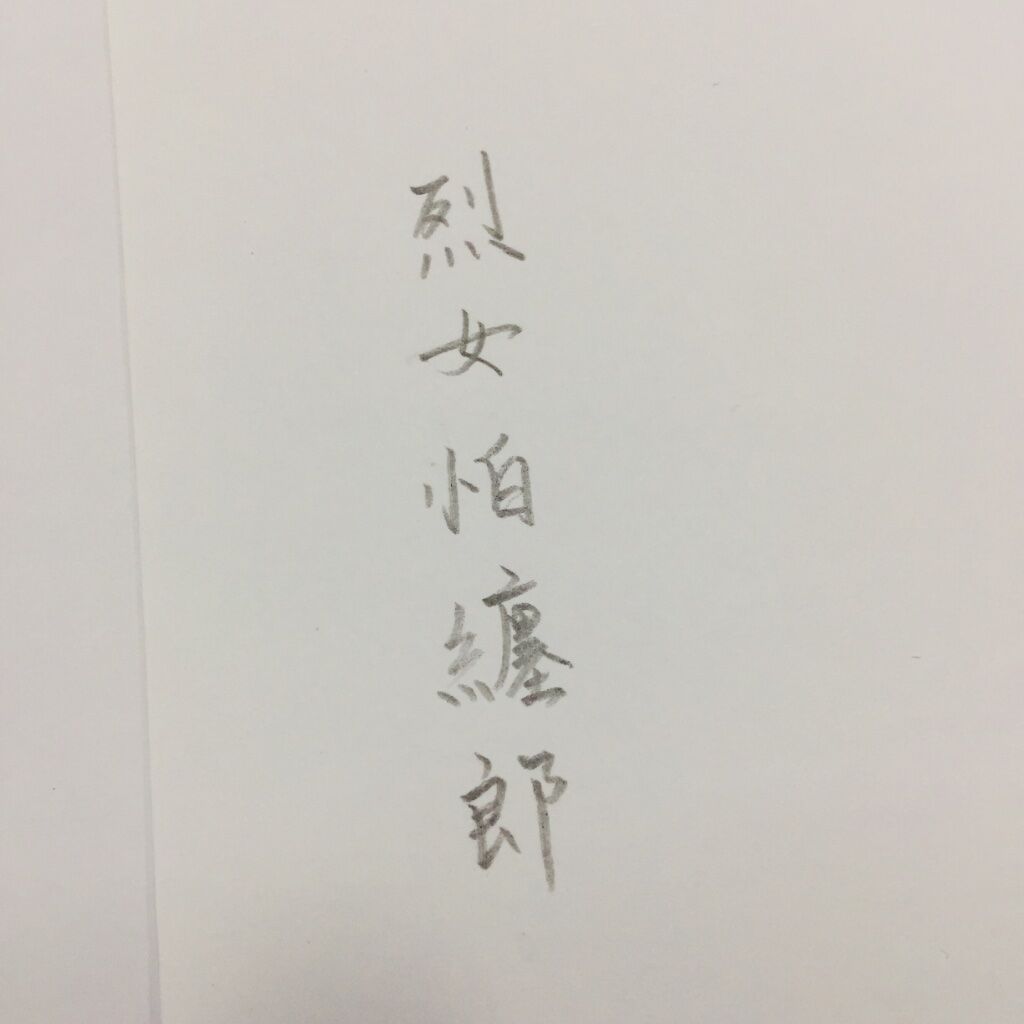 烈女怕纏郎